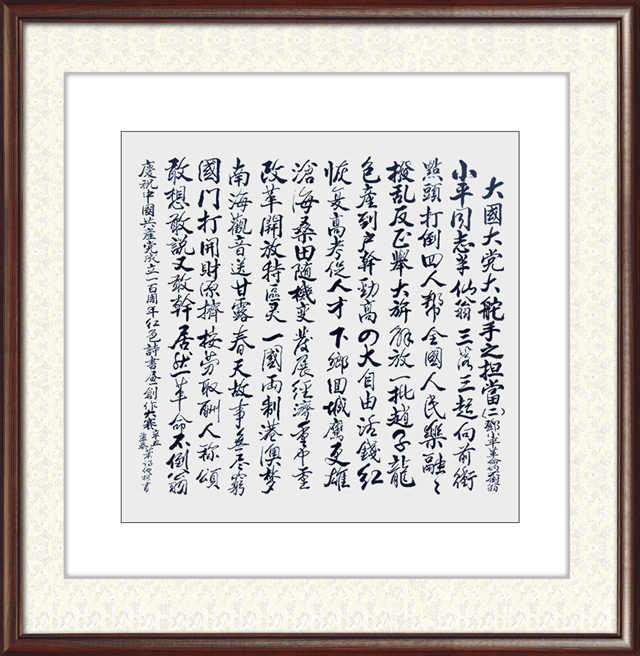 大國大党大舵手之担當(二)鄧小平革命
小平同志半仙翁 三落三起向前衝
點頭打倒四人帮 全國人民樂融〻
撥乱反正舉大旂 解放一批趙子龍
包產到户幹勁高 の大自由活錢红
恢复高考促人才 下鄉回城鹰更雄
滄海桑田随機变 發展經濟重中重
改革開放特區灵 一國両制港澳梦
南海觀音送甘露 春天故事無尽窮
國门打開財源擠 按劳取酬人称頌
敢想敢說又敢幹 居然一革命不倒翁
慶祝中國共產党成立一百周年红色詩書画創作大赛 辛丑孟春